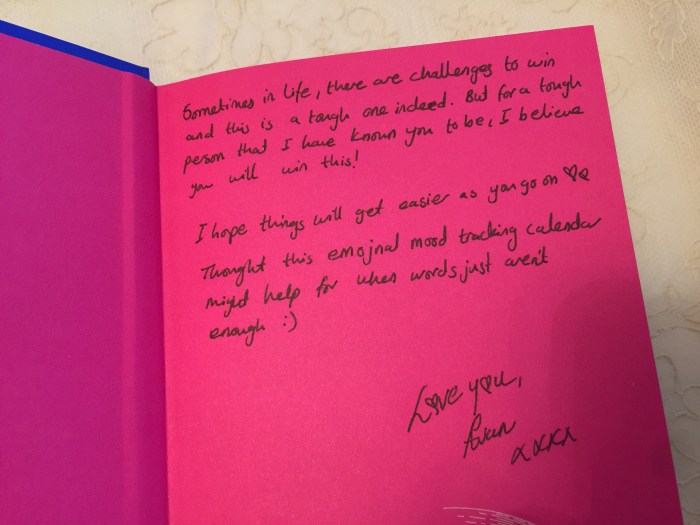 Sometimes in life, there are challenges to win
and this is a tough one indeed. But for a tough
person that I have known you to be, I believe
you will win this!
I hope things will get easier as you go on ♡♡
Thought this emojnal mood tracking calendar
might help for when words just aren't
enough :)
Love you,
xxxx